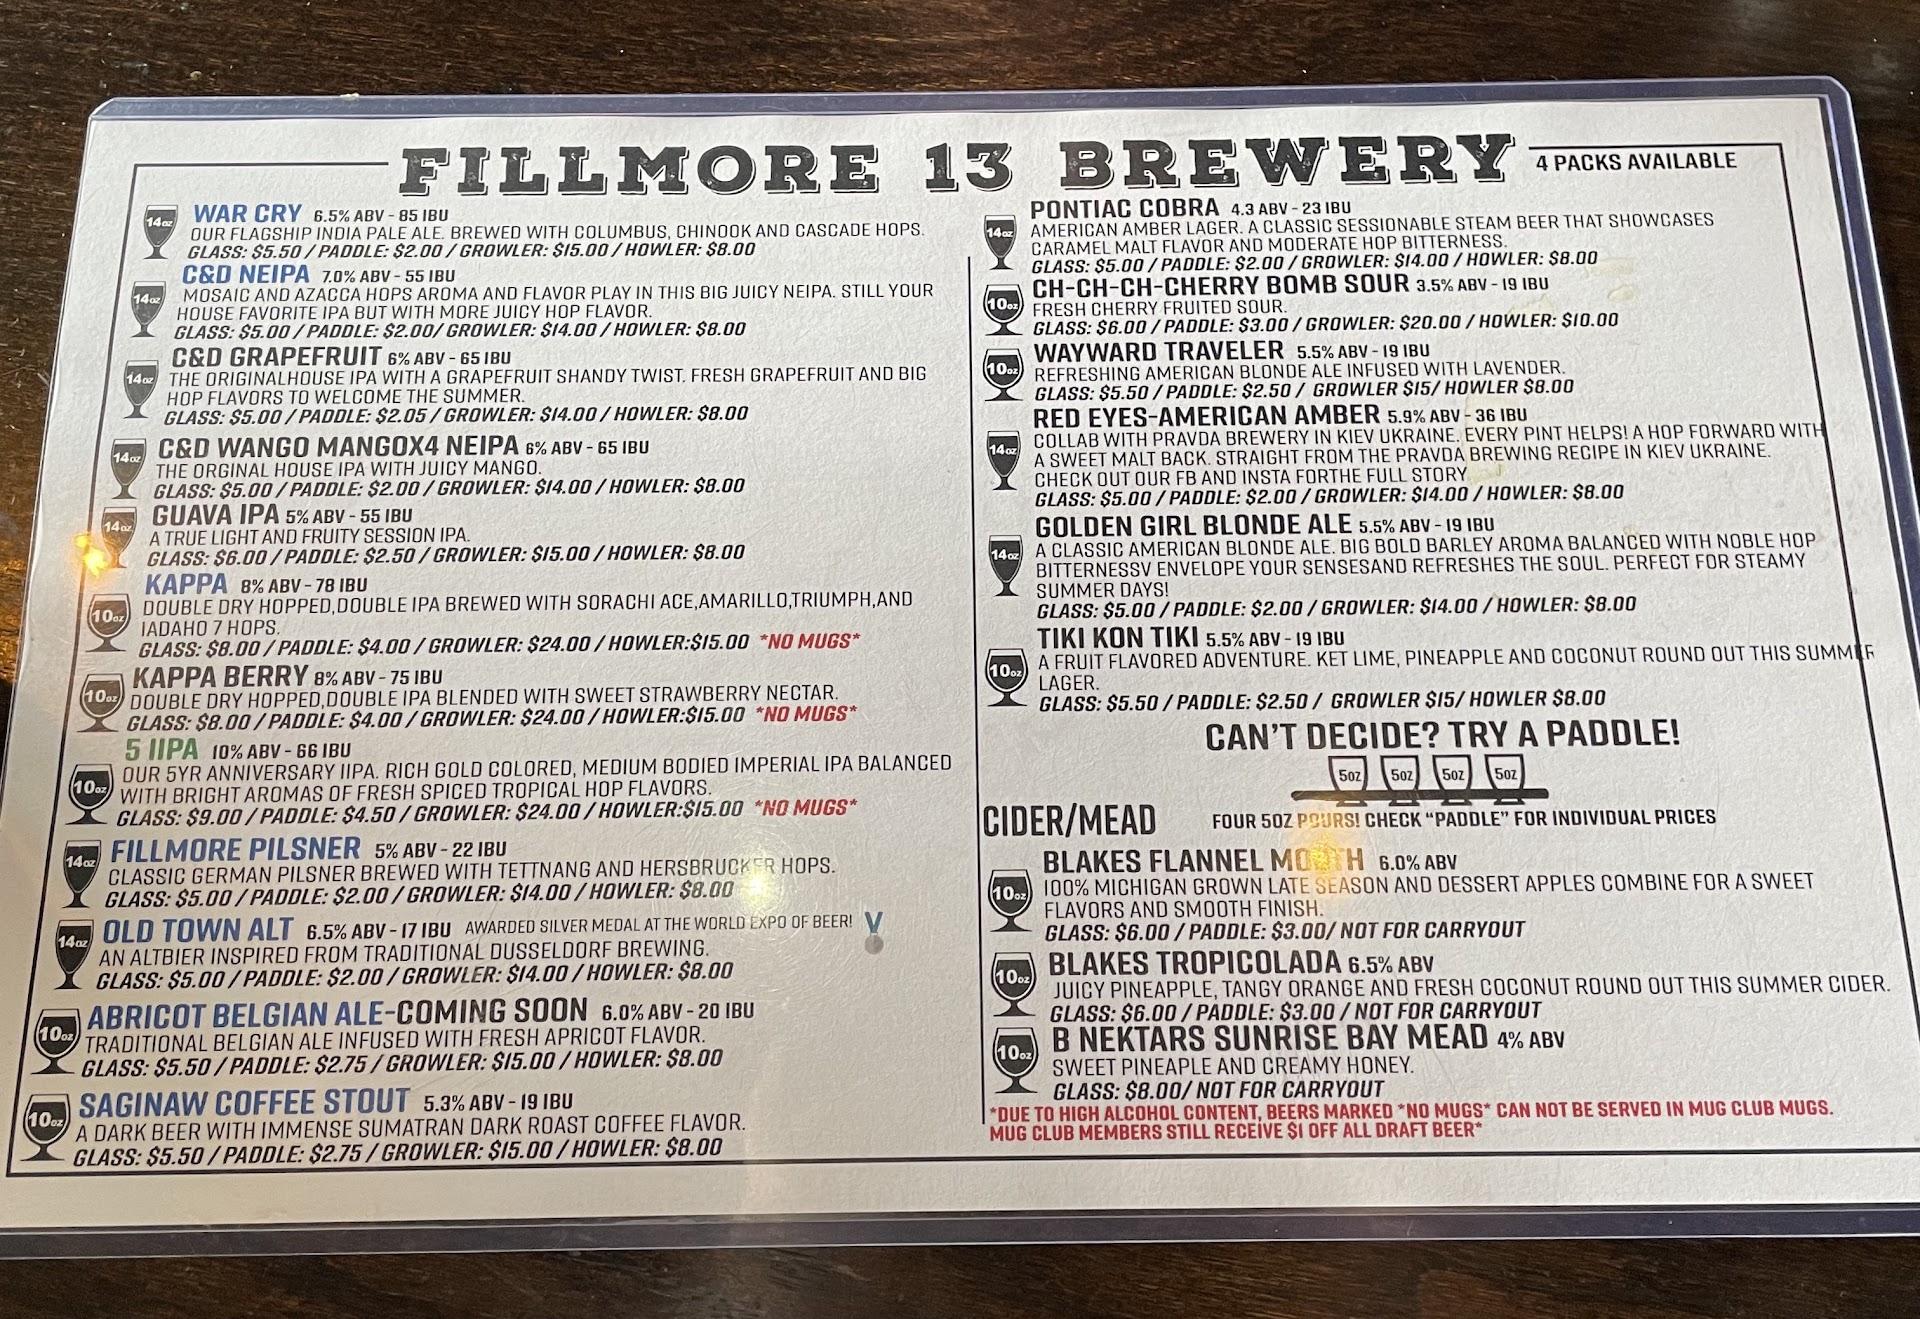 FILLMORE 13 BREWERY
4 PACKS AVAILABLE
14oz
WAR CRY 6.5% ABV - 85 IBU
OUR FLAGSHIP INDIA PALE ALE. BREWED WITH COLUMBUS, CHINOOK AND CASCADE HOPS.
GLASS: $5.50 / PADDLE: $2.00 / GROWLER: $15.00 / HOWLER: $8.00
14oz
C&D NEIPA 7.0% ABV - 55 IBU
MOSAIC AND AZACCA HOPS AROMA AND FLAVOR PLAY IN THIS BIG JUICY NEIPA. STILL YOUR
HOUSE FAVORITE IPA BUT WITH MORE JUICY HOP FLAVOR.
GLASS: $5.00 / PADDLE: $2.00/ GROWLER: $14.00 / HOWLER: $8.00
14oz
C&D GRAPEFRUIT 6% ABV - 65 IBU
THE ORIGINALHOUSE IPA WITH A GRAPEFRUIT SHANDY TWIST. FRESH GRAPEFRUIT AND BIG
HOP FLAVORS TO WELCOME THE SUMMER.
GLASS: $5.00 / PADDLE: $2.05 / GROWLER: $14.00 / HOWLER: $8.00
14oz
C&D WANGO MANGOX4 NEIPA 6% ABV - 65 IBU
THE ORGINAL HOUSE IPA WITH JUICY MANGO.
GLASS: $5.00 / PADDLE: $2.00 / GROWLER: $14.00 / HOWLER: $8.00
14oz
GUAVA IPA 5% ABV - 55 IBU
A TRUE LIGHT AND FRUITY SESSION IPA.
GLASS: $6.00 / PADDLE: $2.50 / GROWLER: $15.00 / HOWLER: $8.00
10oz
KAPPA 8% ABV - 78 IBU
DOUBLE DRY HOPPED,DOUBLE IPA BREWED WITH SORACHI ACE,AMARILLO,TRIUMPH,AND
IADAHO 7 HOPS.
GLASS: $8.00 / PADDLE: $4.00 / GROWLER: $24.00 / HOWLER:$15.00 *NO MUGS*
10oz
KAPPA BERRY 8% ABV - 75 IBU
DOUBLE DRY HOPPED,DOUBLE IPA BLENDED WITH SWEET STRAWBERRY NECTAR.
GLASS: $8.00 / PADDLE: $4.00 / GROWLER: $24.00 / HOWLER:$15.00 *NO MUGS*
10oz
5 IIPA 10% ABV - 66 IBU
OUR 5YR ANNIVERSARY IIPA. RICH GOLD COLORED, MEDIUM BODIED IMPERIAL IPA BALANCED
WITH BRIGHT AROMAS OF FRESH SPICED TROPICAL HOP FLAVORS.
GLASS: $9.00 / PADDLE: $4.50 / GROWLER: $24.00 / HOWLER:$15.00 *NO MUGS*
14oz
FILLMORE PILSNER 5% ABV - 22 IBU
CLASSIC GERMAN PILSNER BREWED WITH TETTNANG AND HERSBRUCKER HOPS.
GLASS: $5.00 / PADDLE: $2.00 / GROWLER: $14.00 / HOWLER: $8.00
14oz
OLD TOWN ALT 6.5% ABV - 17 IBU AWARDED SILVER MEDAL AT THE WORLD EXPO OF BEER!
AN ALTBIER INSPIRED FROM TRADITIONAL DUSSELDORF BREWING.
GLASS: $5.00 / PADDLE: $2.00 / GROWLER: $14.00 / HOWLER: $8.00
10oz
ABRICOT BELGIAN ALE-COMING SOON 6.0% ABV - 20 IBU
TRADITIONAL BELGIAN ALE INFUSED WITH FRESH APRICOT FLAVOR.
GLASS: $5.50 / PADDLE: $2.75 / GROWLER: $15.00 / HOWLER: $8.00
10oz
SAGINAW COFFEE STOUT 5.3% ABV - 19 IBU
A DARK BEER WITH IMMENSE SUMATRAN DARK ROAST COFFEE FLAVOR.
GLASS: $5.50 / PADDLE: $2.75 / GROWLER: $15.00 / HOWLER: $8.00
14oz
PONTIAC COBRA 4.3 ABV - 23 IBU
AMERICAN AMBER LAGER. A CLASSIC SESSIONABLE STEAM BEER THAT SHOWCASES
CARAMEL MALT FLAVOR AND MODERATE HOP BITTERNESS.
GLASS: $5.00 / PADDLE: $2.00 / GROWLER: $14.00 / HOWLER: $8.00
10oz
CH-CH-CH-CHERRY BOMB SOUR 3.5% ABV - 19 IBU
FRESH CHERRY FRUITED SOUR.
GLASS: $6.00 / PADDLE: $3.00 / GROWLER: $20.00 / HOWLER: $10.00
10oz
WAYWARD TRAVELER 5.5% ABV - 19 IBU
REFRESHING AMERICAN BLONDE ALE INFUSED WITH LAVENDER.
GLASS: $5.50 / PADDLE: $2.50 / GROWLER $15/ HOWLER $8.00
14oz
RED EYES-AMERICAN AMBER 5.9% ABV - 36 IBU
COLLAB WITH PRAVDA BREWERY IN KIEV UKRAINE. EVERY PINT HELPS! A HOP FORWARD WITH
A SWEET MALT BACK. STRAIGHT FROM THE PRAVDA BREWING RECIPE IN KIEV UKRAINE.
CHECK OUT OUR FB AND INSTA FORTHE FULL STORY
GLASS: $5.00 / PADDLE: $2.00 / GROWLER: $14.00 / HOWLER: $8.00
14oz
GOLDEN GIRL BLONDE ALE 5.5% ABV - 19 IBU
A CLASSIC AMERICAN BLONDE ALE. BIG BOLD BARLEY AROMA BALANCED WITH NOBLE HOP
BITTERNESSV ENVELOPE YOUR SENSESAND REFRESHES THE SOUL. PERFECT FOR STEAMY
SUMMER DAYS!
GLASS: $5.00 / PADDLE: $2.00 / GROWLER: $14.00 / HOWLER: $8.00
10oz
TIKI KON TIKI 5.5% ABV - 19 IBU
A FRUIT FLAVORED ADVENTURE. KET LIME, PINEAPPLE AND COCONUT ROUND OUT THIS SUMMER
LAGER.
GLASS: $5.50 / PADDLE: $2.50 / GROWLER $15/ HOWLER $8.00
CAN'T DECIDE? TRY A PADDLE!
5oz 5oz 5oz 5oz
FOUR 5OZ POURS! CHECK "PADDLE" FOR INDIVIDUAL PRICES
CIDER/MEAD
10oz
BLAKES FLANNEL MOUTH 6.0% ABV
100% MICHIGAN GROWN LATE SEASON AND DESSERT APPLES COMBINE FOR A SWEET
FLAVORS AND SMOOTH FINISH.
GLASS: $6.00 / PADDLE: $3.00/ NOT FOR CARRYOUT
10oz
BLAKES TROPICOLADA 6.5% ABV
JUICY PINEAPPLE, TANGY ORANGE AND FRESH COCONUT ROUND OUT THIS SUMMER CIDER.
GLASS: $6.00 / PADDLE: $3.00 / NOT FOR CARRYOUT
10oz
B NEKTARS SUNRISE BAY MEAD 4% ABV
SWEET PINEAPLE AND CREAMY HONEY.
GLASS: $8.00/ NOT FOR CARRYOUT
*DUE TO HIGH ALCOHOL CONTENT, BEERS MARKED *NO MUGS* CAN NOT BE SERVED IN MUG CLUB MUGS.
MUG CLUB MEMBERS STILL RECEIVE $1 OFF ALL DRAFT BEER*